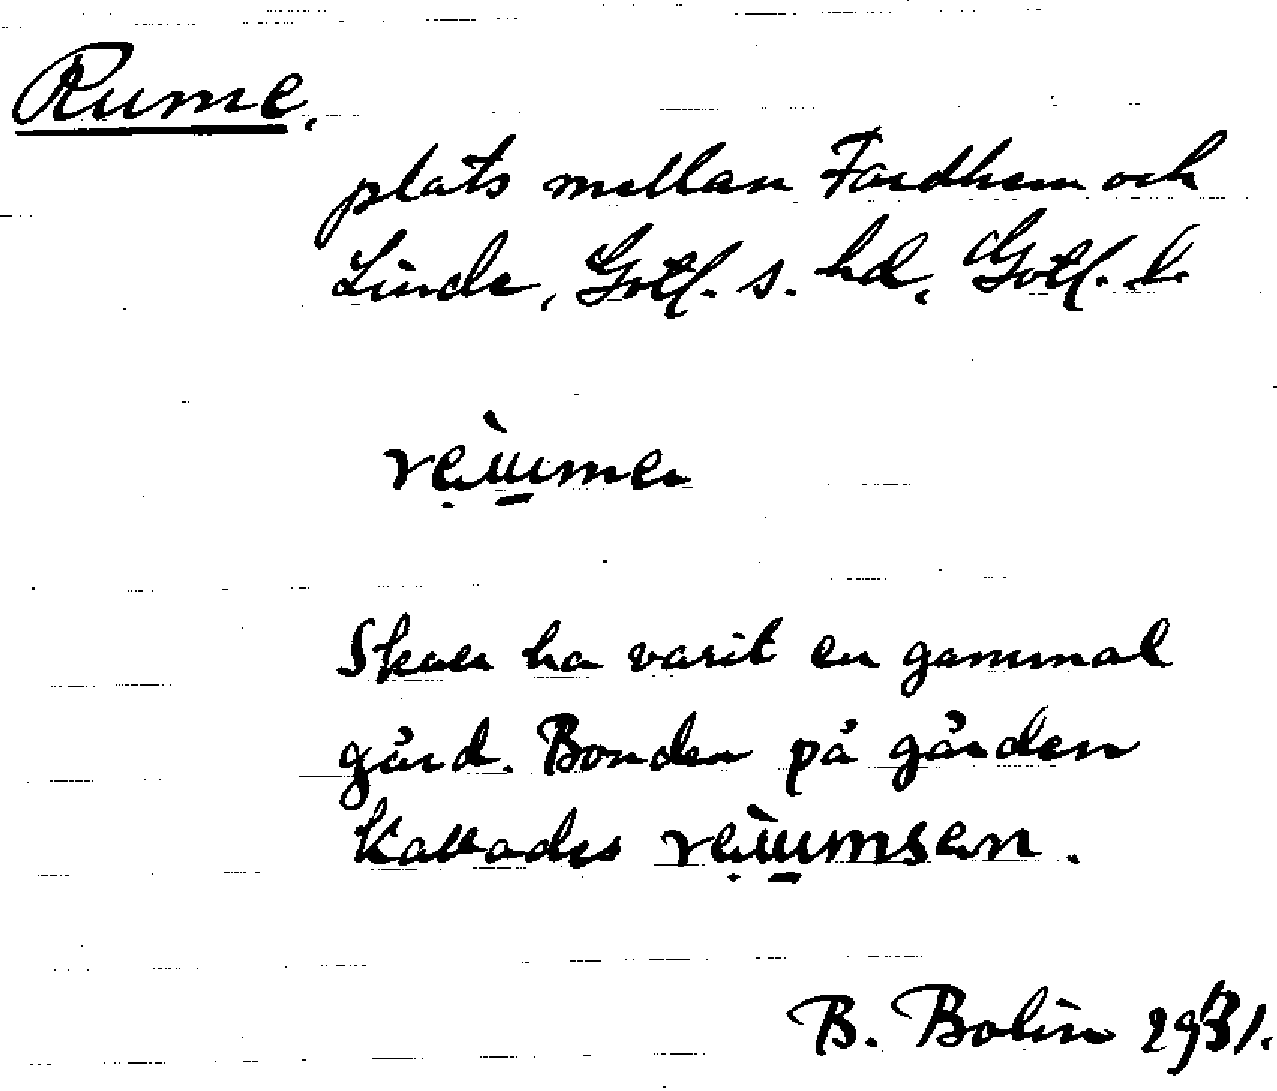 Rume,
plats mellan Fardhem och
Linde, Gotl. s. hd, Gotl. l.
Skall ha varit en gammal
gård. Bonden på gården
kallades
B. Bolin